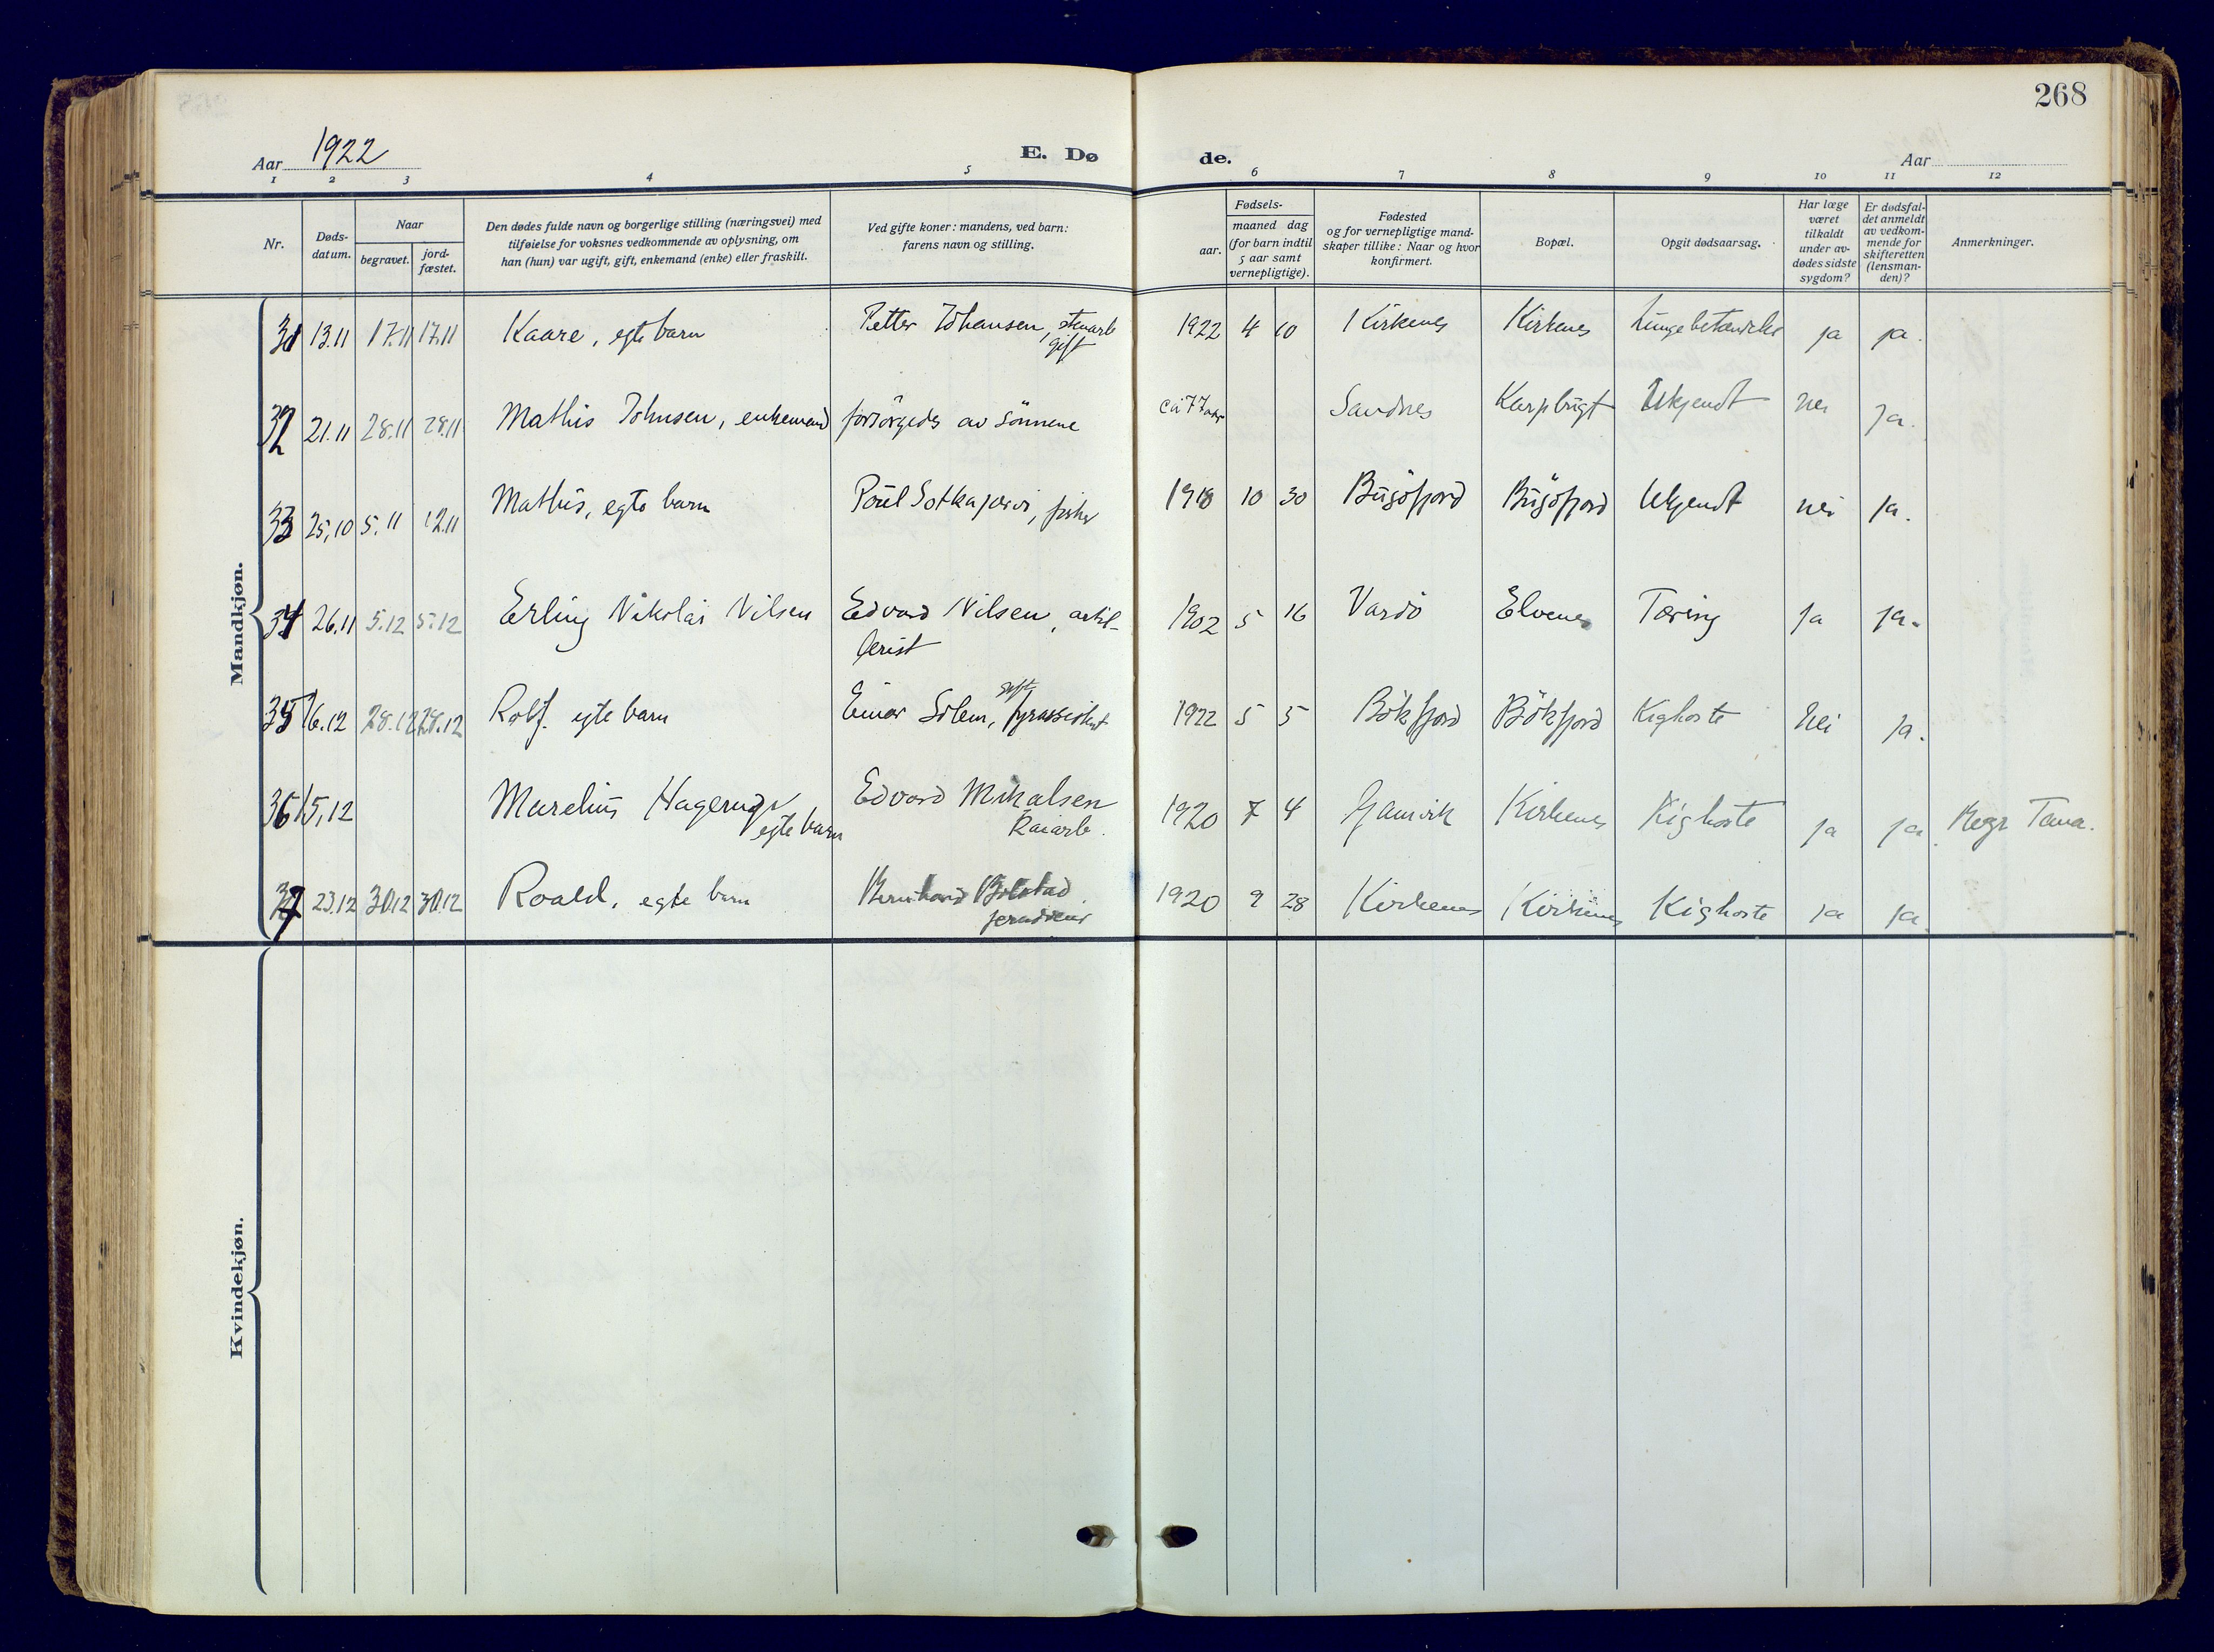 268
Aar 1922
E. Dø
de.
Aar
1 2 3 4 5 6 7 8 9 10 11 12
Nr.
Døds-
datum.
Naar
begravet.
jord-
fæstet.
Den dødes fulde navn og borgerlige stilling (næringsvei) med
tilføielse for voksnes vedkommende av oplysning, om
han (hun) var ugift, gift, enkemand (enke) eller fraskilt.
Ved gifte koner: mandens, ved barn:
farens navn og stilling.
Fødsels-
aar.
maaned dag
(for barn indtil
5 aar samt
vernepligtige).
Fødested
og for vernepligtige mand-
skaper tillike: Naar og hvor
konfirmert.
Bopæl.
Opgit dødsaarsag.
Har læge
været
tilkaldt
under av-
dødes sidste
sygdom?
Er dødsfal-
det anmeldt
av vedkom-
mende for
skifteretten
(lensman-
den)?
Anmerkninger.
Mandkjøn.
31 13.11 17.11 17.11 Kaare, egte barn Petter Johansen, stenarb 1922 4 10 Kirkenes Kirkenes Lungebetændelse ja ja.
gift
32 21.11 28.11 28.11 Mathis Johnsen, enkemand forsörgedes av sönnene ca 77 aar Sandnes Karpbugt Ukjendt nei ja.
33 25.10 5.11 12.11 Mathis, egte barn Poul Sotkajærvi, fisker 1918 10 30 Bugöfjord Bugöfjord Ukjendt nei ja.
34 26.11 5.12 5.12 Erling Nikolai Nilsen Edvard Nilsen, artil-
lerist 1902 5 16 Vardö Elvenes Tæring ja ja.
35 16.12 28.12 28.12 Rolf. egte barn Einar Solem, gift fyrassistent 1922 5 5 Bökfjord Bökfjord Kighoste Nei ja.
36 15.12 Marelius Hagerup, Edvard Mikalsen 1920 7 4 Gamvik Kirkenes Kighoste ja ja Regr Tana.
egte barn Kaiarb.
37 23.12 30.12 30.12 Roald, egte barn Bernhard 1920 9 28 Kirkenes Kirkenes Kighoste ja ja.
Kvindekjøn.